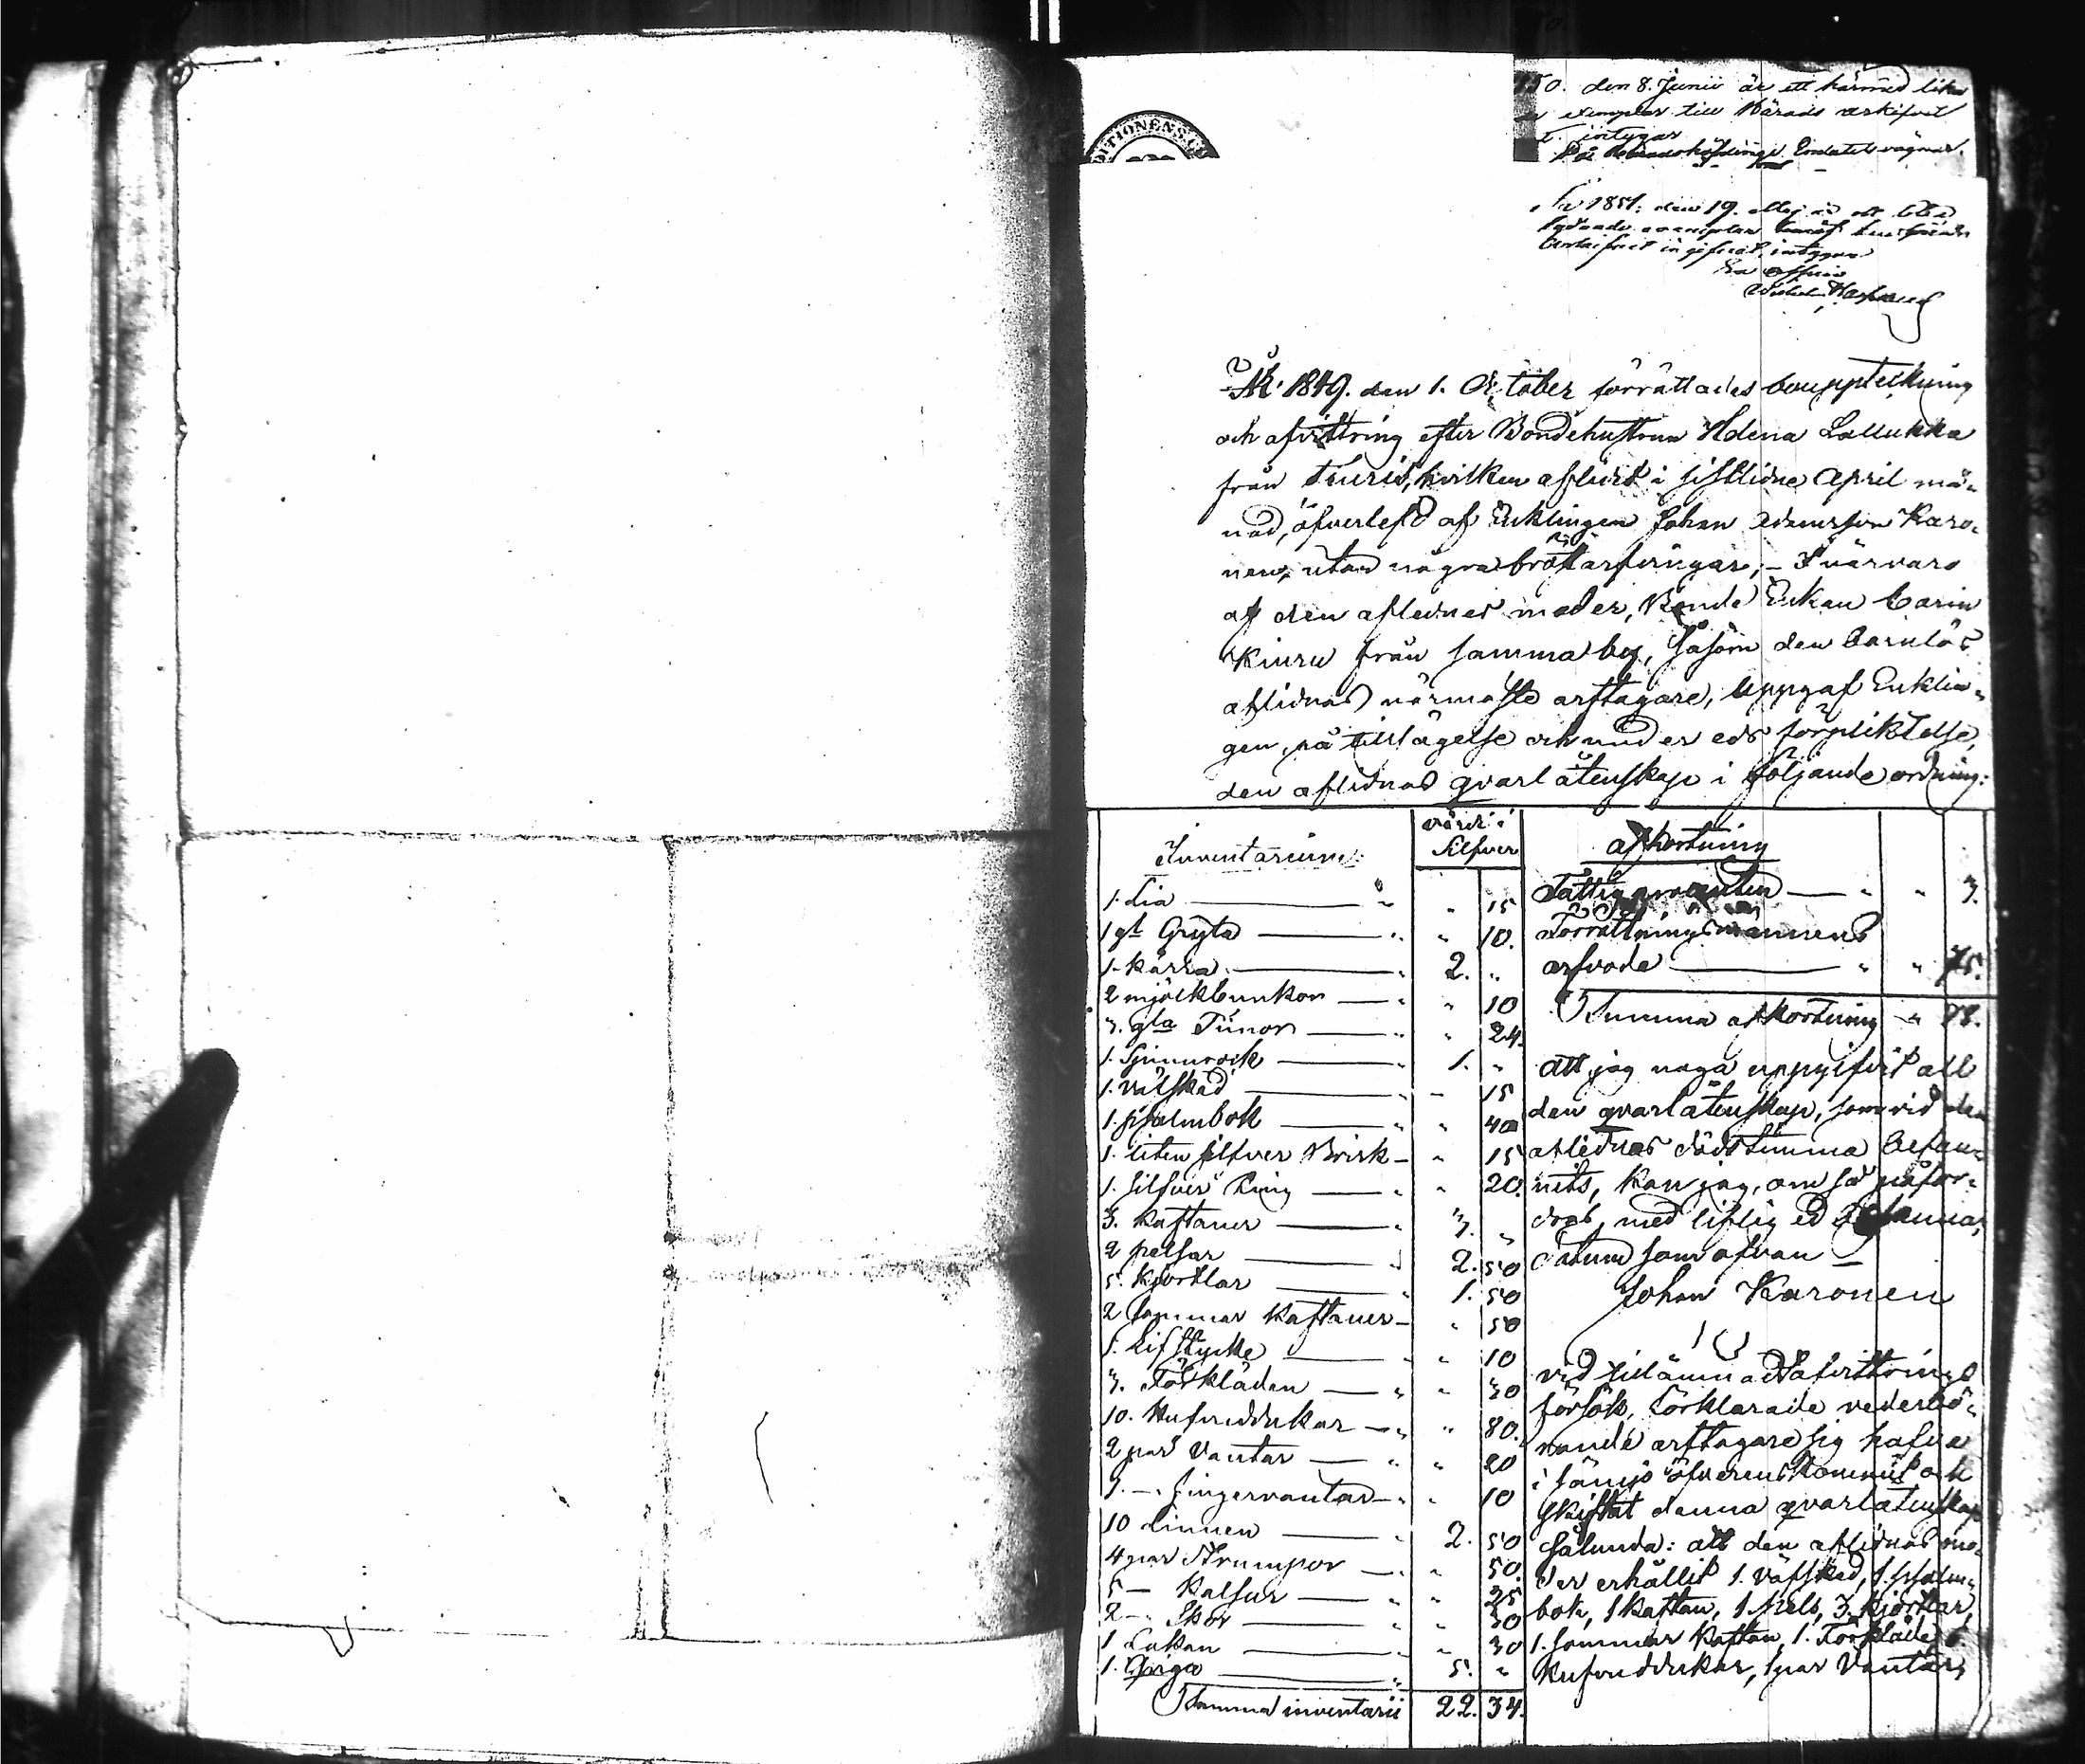 50. den 8. Junii är ett härmed lika
exemplar till Härads arkifvet
intygar
På Häradshöfdinge Embetets vägnar.
DITIONENS
År 1851. den 19. Maj är ett lika
lydande exemplar
ingifvet, intygar
Ex officio
År 1849. den 1. October förrättades bouppteckning
och afvittring efter Bondehustrun Helena Lallukka
från hvilken aflidit i sistlidne April må-
nad, öfverlefd af Enklingen Johan Adamsson Karo-
nen, utan några bröstarfvingar; - I närvaro
af den aflednes moder, Bonde Enkan Carin
Kiuru från samma by, såsom den barnlös
aflidnas närmaste arftagare, uppgaf Enklin-
gen, på tillsägelse och under eds förpliktelse,
den aflidnas qvarlåtenskap i följande ordning:
Inventarium värde i Silfver
1. Lia — " " 15
1 gl Gryta — " " 10.
1. kärra — " 2. "
2 mjölkbunkor — " " 10
3. gla Tunor — " " 24.
1. Spinnrock — " 1. "
1. Väfsked — " 15
1. psalmbok — " " 40
1. liten silfver Brisk — " 15
1. silfver Ring — " " 20.
3. Kaftaner — " 3. "
2 pelsar — " 2. 50
5. Kjortlar — " 1. 50
2 Sommar Kaftaner — " 50
1. Lifstycke — " " 10
3. Förkläden — " " 30
10. Hufvuddukar — " " 80.
2 par Vantar — " " 20
1. — " fingervantar — " " 10
10 Linnen — " 2. 50
4 par Strumpor — " " 50.
5 — Kalsur — " " 25
2 — " Skor — " " 50
1 Lakan — " " 30
1. Qviga — " 5. "
Summa inventarii 22. 34.
afkortning
Fattigprocenten — " " 3.
Förrättningsmannens
arfvode — " " 75.
Summa afkortning " 78.
att jag noga uppgifvit all
den qvarlåtenskap, som vid den
aflednas dödstimma befun-
nits, kan jag, om så påfor-
dras, med liflig ed
datum som ofvan
Johan Karonen
vid afvittrings
försök, förklarade vederbö-
rande arftagare sig hafva
i sämjo öfverenskommit och
skiftat denna qvarlåtenskap
sålunda: att den aflidnas mo-
der erhållit 1. väfsked, 1. psalm-
bok, 1 kaftan, 1 Pels, 3. kjortlar,
1. sommar Kaftan, 1. Förkläde,
hufvuddukar, 1 par Vantar,